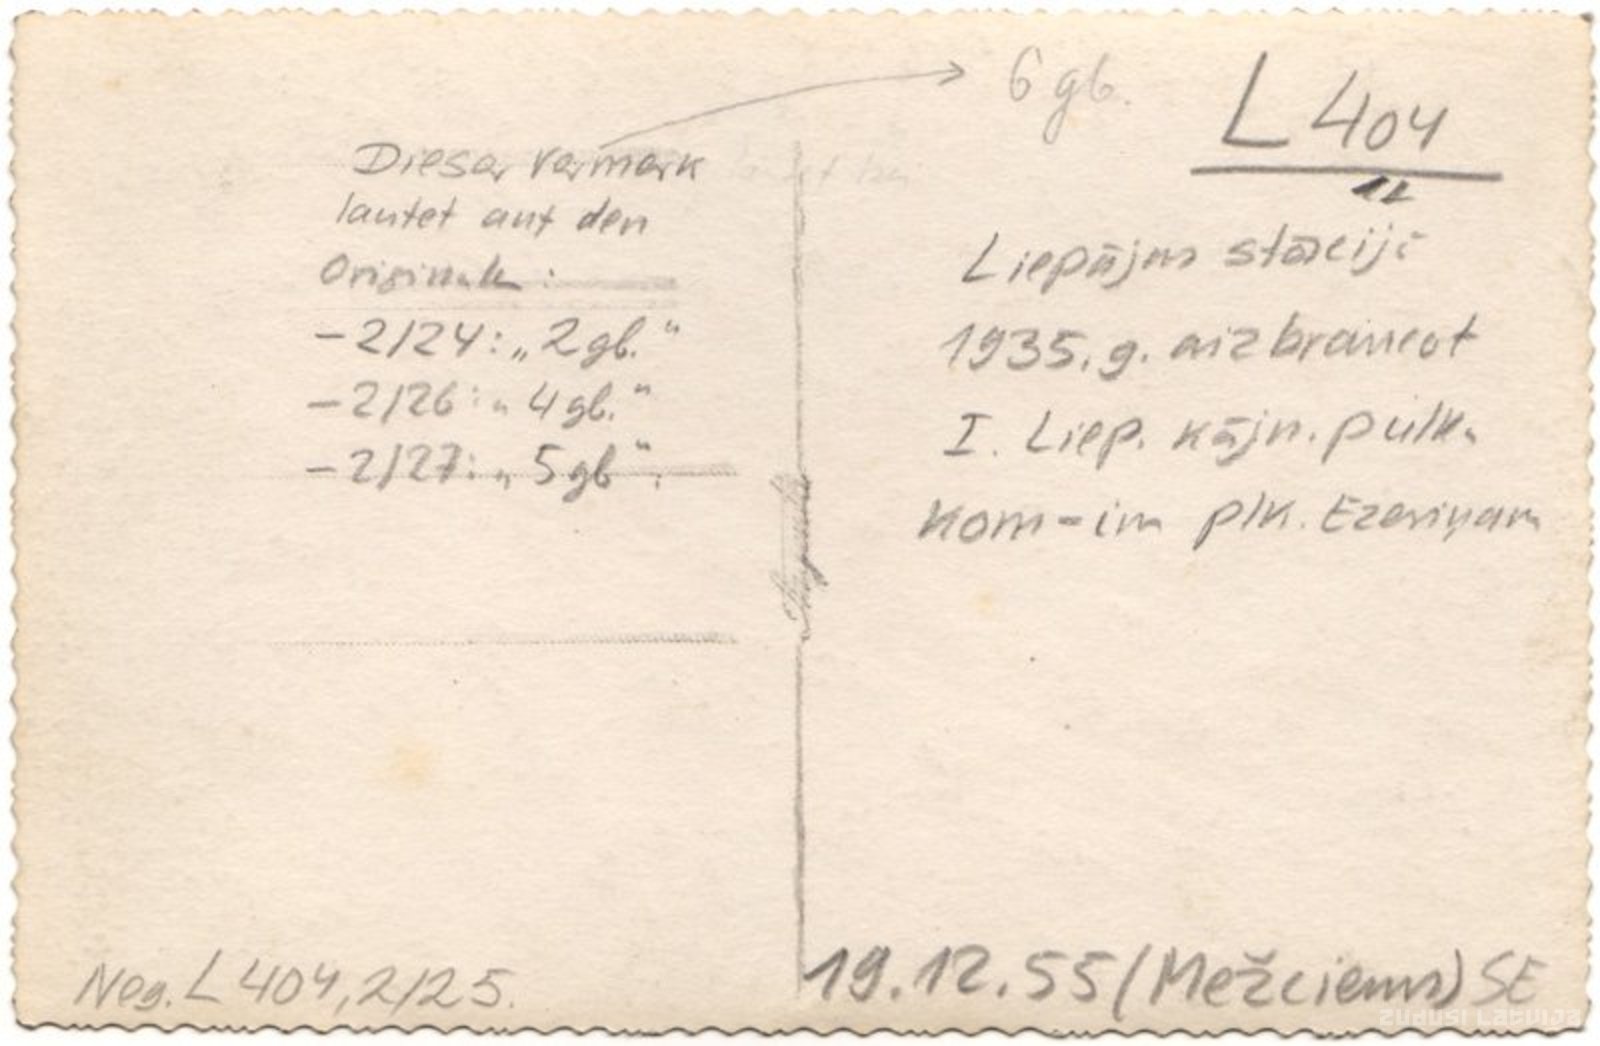 6 gb.
L 404
12
Dieser Vermerk
lautet auf den
Originale:
-2/24: „2 gb."
-2/26: „4 gb."
-2/27: „5 gb".
Liepājas stācijā
1935. g. aizbraucot
I. Liep. kājn. pulk.
kom-im plk. Ezeriņam
Neg. L 404, 2/25.
19.12.55 (Mežciems) SE
zudusi latvija